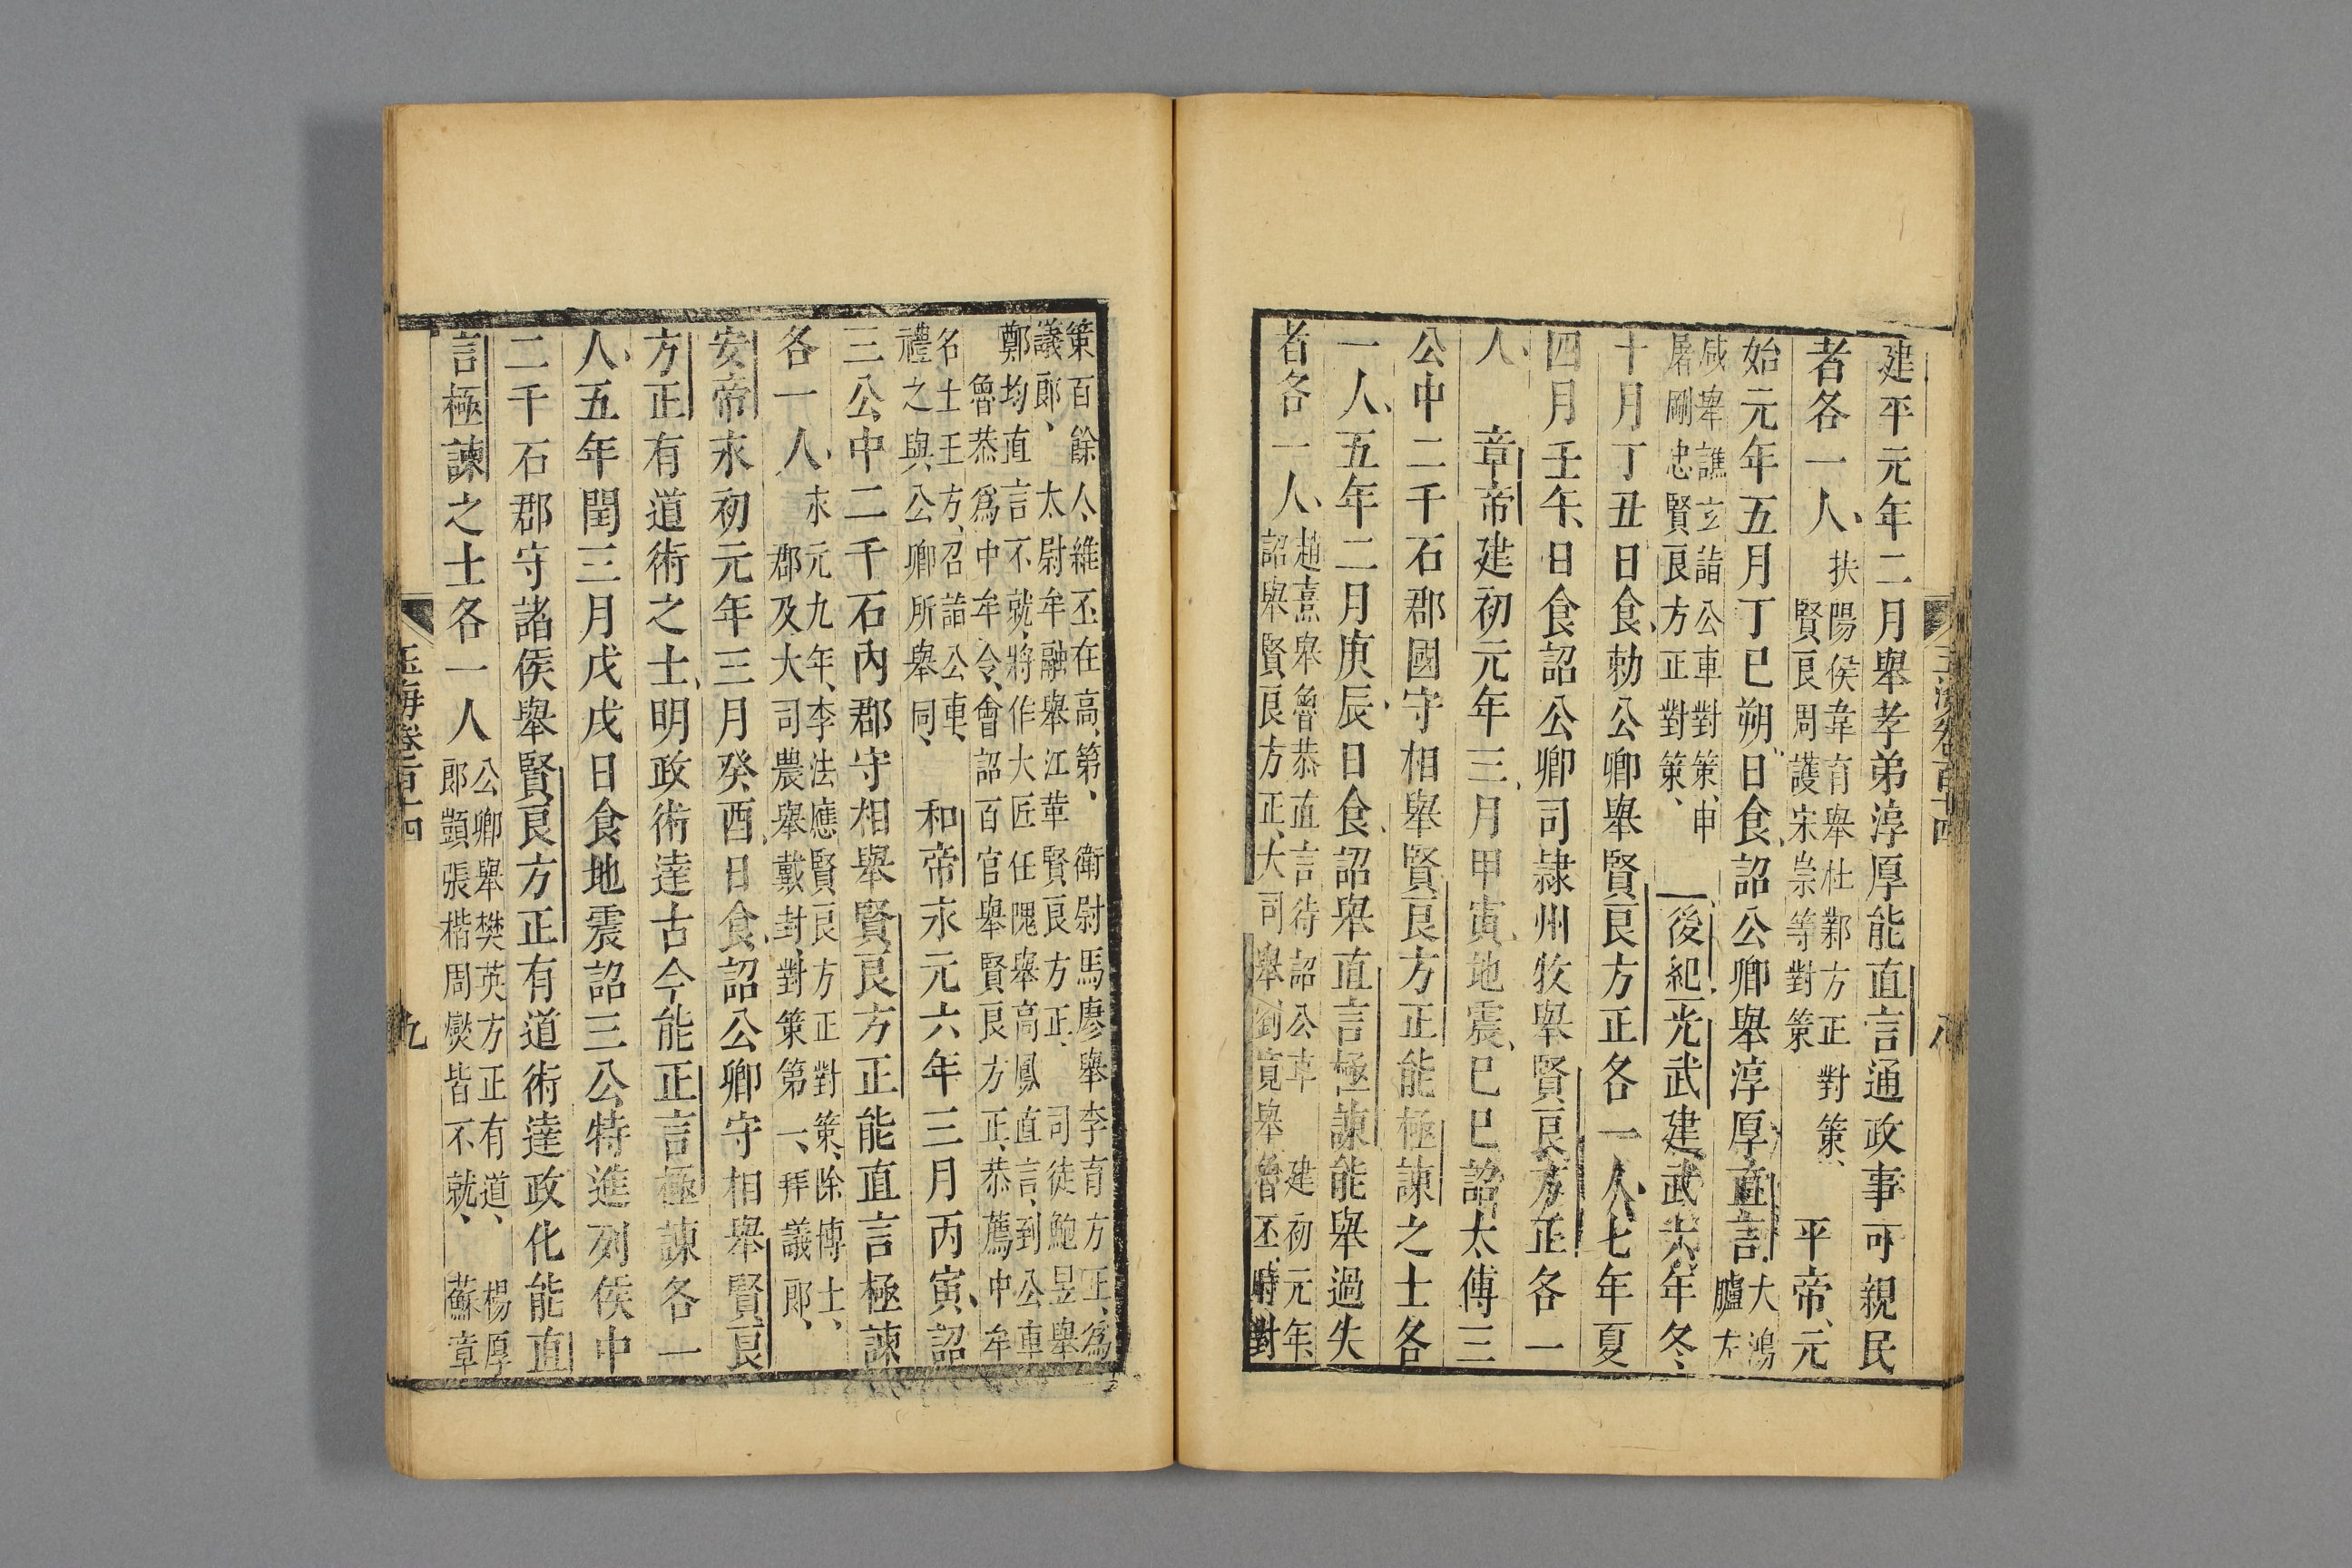 玉海卷一百十四
八
建平元年二月舉孝弟淳厚能直言通政事可親民
者各一人扶陽侯韋育舉杜鄴方正對策
賢良周護宋崇等對策
平帝元
始元年五月丁巳朔日食詔公卿舉淳厚直言大鴻
臚左
咸舉譙玄詣公車對策申
屠剛忠賢良方正對策
後紀光武建武六年冬
十月丁丑日食勅公卿舉賢良方正各一人七年夏
四月壬午日食詔公卿司隷州牧舉賢良方正各一
人 章帝建初元年三月甲寅地震己巳詔太傅三
公中二千石郡國守相舉賢良方正能極諫之士各
一人五年二月庚辰日食詔舉直言極諫能舉過失
者各一人趙熹舉魯恭直言待詔公車 建初元年
詔舉賢良方正大司舉劉寬舉魯丕時對
策百餘人維丕在高第 衛尉馬廖舉李育方正爲
議郎 太尉牟融舉江革賢良方正 司徒鮑昱舉
鄭均直言不就將作大匠任隗舉高鳳直言到公車
魯恭爲中牟令會詔百官舉賢良方正恭薦中牟
名士王方召詣公車
禮之與公卿所舉同
和帝永元六年三月丙寅詔
三公中二千石内郡守相舉賢良方正能直言極諫
各一人永元九年李法應賢良方正對策除博士
郡及大司農舉戴封對策第一拜議郎
安帝永初元年三月癸酉日食詔公卿守相舉賢良
方正有道術之士明政術達古今能正言極諫各一
人五年閏三月戊戌日食地震詔三公特進列侯中
二千石郡守諸侯舉賢良方正有道術達政化能直
言極諫之士各一人公卿舉樊英方正有道 楊厚
郎顗張楷周爕皆不就 蘇章
玉海卷一百十四
九